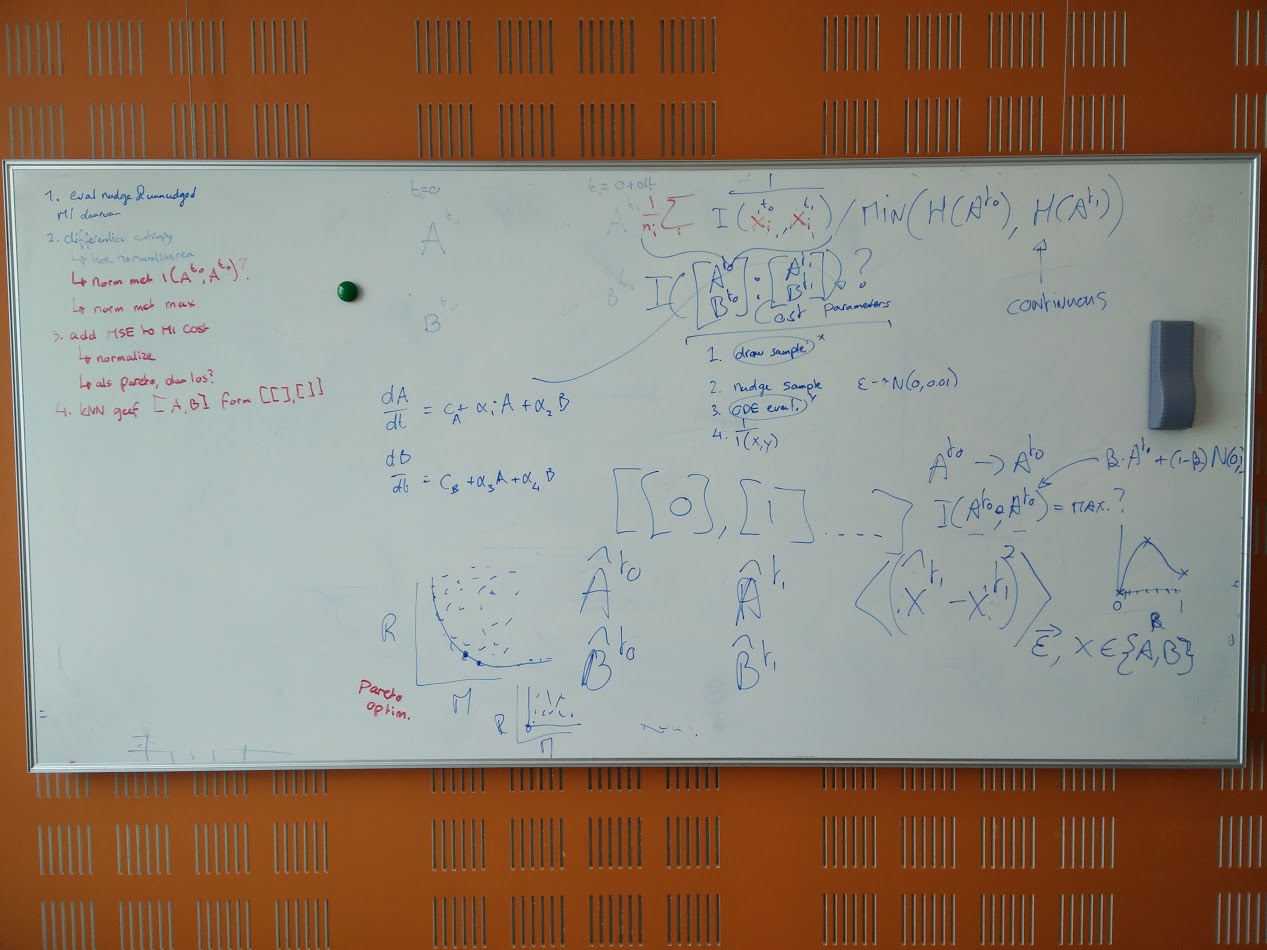 1. eval nudge & unnudged
MI daarvan
2. differentice entropy
↳ hoe normaliseren
↳ norm met I(A^t0, A^t0)?
↳ norm met max
3. add MSE to MI cost
↳ normalize
↳ als pareto, dan los?
4. kNN geef [A,B] form [[],[]]
t=0
t₁ = 0+dt
A^t0
B^t0
A^t1
B^t1
1/nᵢ Σᵢ 1/I(xᵢ^t0, xᵢ^t1) / MIN(H(A^t0), H(A^t1))
↑
CONTINUOUS
I([A^t0 B^t0] : [A^t1 B^t1]) ?
Cost parameters
1. draw sample x
2. nudge sample ε ~ N(0, 0.01)
3. ODE eval. Y
4. 1/I(x,y)
dA/dt = c_A + α₁A + α₂B
dB/dt = c_B + α₃A + α₄B
[[0], [1] ....]
A^t0 → A^t0
B·A^t0 + (1-B) N(0,
I(A^t0, A^t0) = MAX.?
0 1
B
Â^t0 Â^t1
B̂^t0 B̂^t1
⟨(x̂^t1 - x^t1)²⟩ ε⃗, x ∈ {A,B}
R
M
Pareto
optim.
R
M